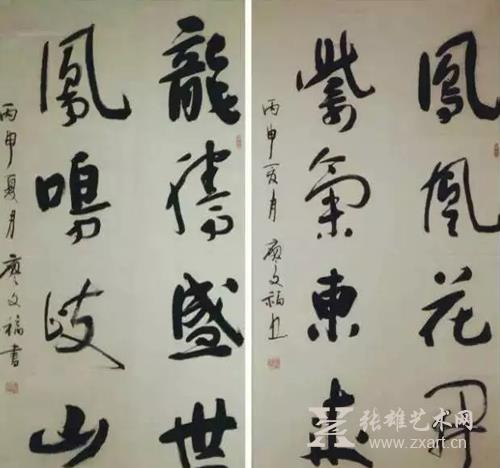 鳳凰花開
紫氣東来
丙申夏月 廖文福书
龍騰盛世
鳳鳴歧山
丙申夏月 廖文福書
张雄艺术网
www.zxart.cn